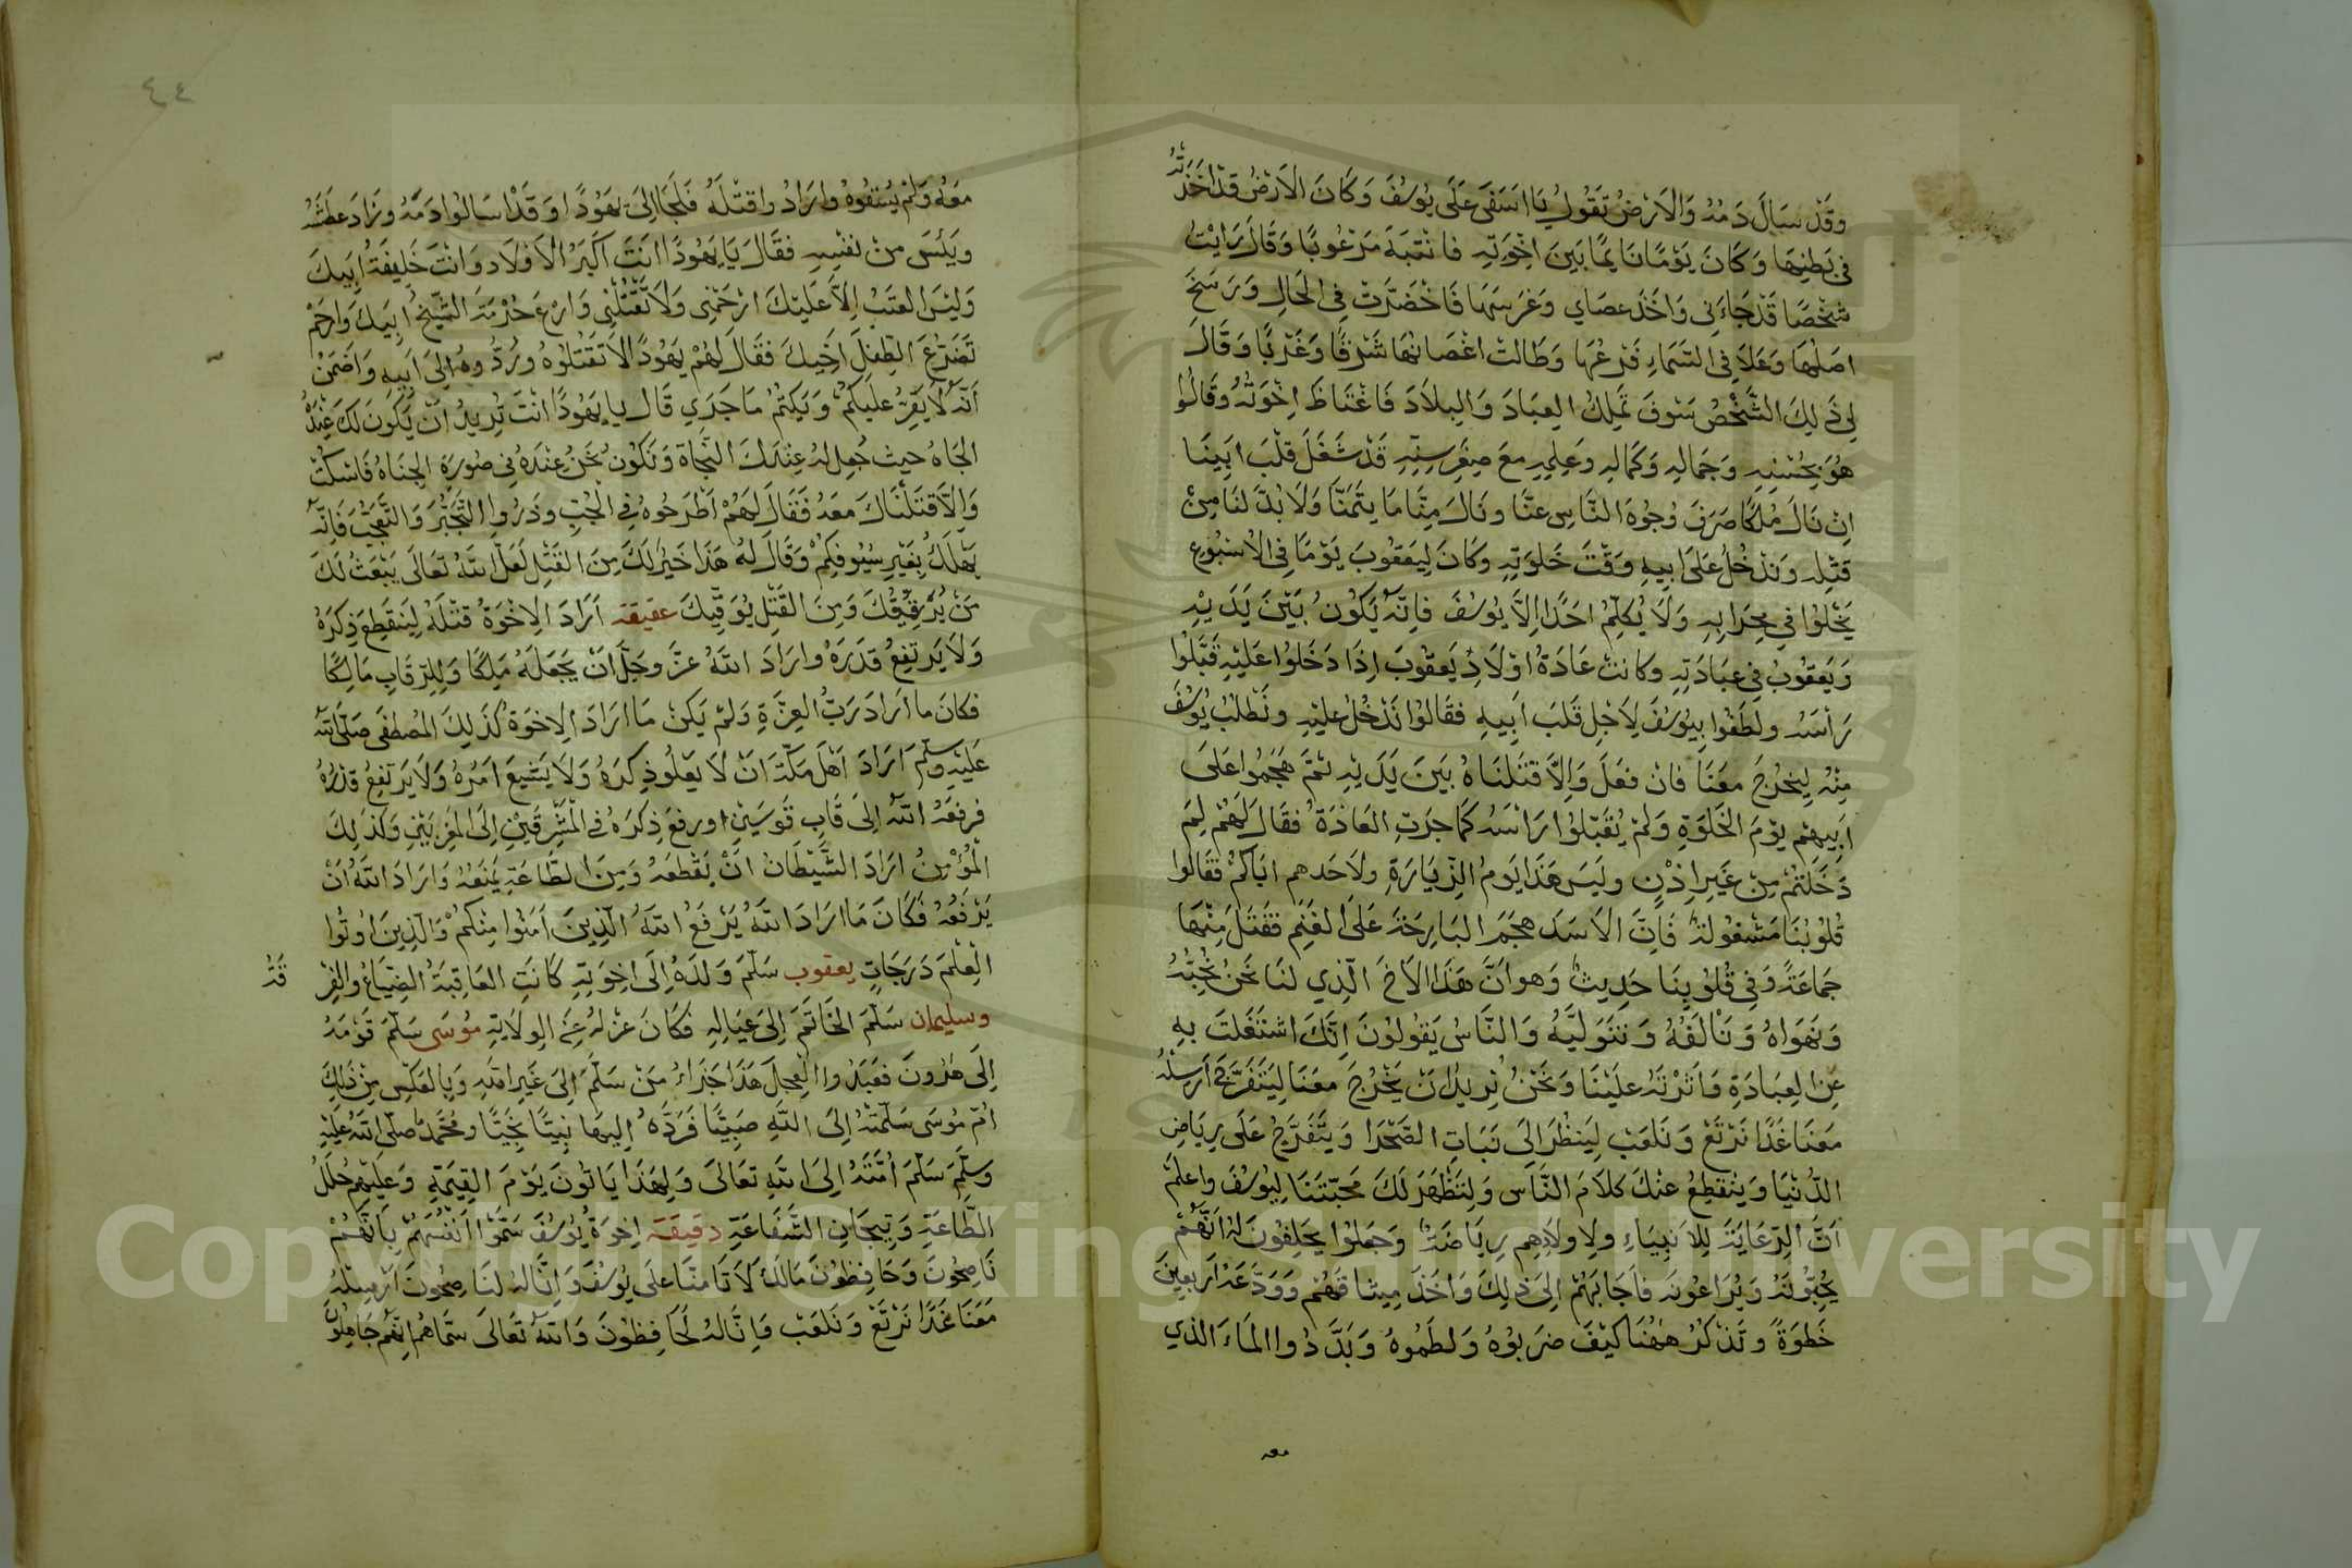 وَقَدْ سَالَ دَمُهُ وَالاَرْضُ تَقُولُ يَا اسَفَى عَلَى يُوسُفَ وَكَانَ الاَرْضُ قَدْ اَخَذَتْهُ
فِى بَطْنِهَا وَكَانَ يَوْمًا نَايِمًا بَيْنَ اِخْوَتِهِ فَانْتَبَهَ مَرْعُوبًا وَقَالَ رَايْتُ
شَخْصًا قَدْ جَاءَنِى وَاَخَذَ عصَاي وَغَرَسَهَا فَاخْضَرَّتْ فِى الْحَالِ وَرَسَخَ
اصْلُهَا وَعَلاَ فِى السَّمَاءِ فَرْعُهَا وَطَالَتْ اغْصَانُهَا شَرْقًا وَغَرْبًا وَقَالَ
لِى ذَلِكَ الشَّخْصُ سَوْفَ تَمْلِكُ العِبَادَ وَالبِلاَدَ فَاغْتَاظَ اِخْوَتُهُ وَقَالُوا
هُوَ بِحُسْنِهِ وَجَمَالِهِ وَكَمَالِهِ وَعِلْمِهِ مَعَ صِغَرِ سِنِّهِ قَدْ شَغَلَ قَلْبَ ابَيْنَا
اِنْ نَالَ مُلْكًا صَرَفَ وُجُوهَ النَّاسِ عَنَّا وَنَالَ مِنَّا مَا يَتَمَنَّا وَلاَ بُدَّ لَنَا مِنْ
قَتْلِهِ وَنَدْخُلُ عَلَى ابِيهِ وَقْتَ خَلْوَتِهِ وَكَانَ لِيَعْقُوبَ يَوْمًا فِى الاُسْبُوعِ
يَخْلُوا فِى مِحْرَابِهِ وَلاَ يُكَلِّمُ احَدًا اِلاَّ يُوسُفَ فَاِنَّهُ يَكُونُ بَيْنَ يَدَيْهِ
وَيَعْقُوبُ فِى عِبَادَتِهِ وَكَانَتْ عَادَةُ اوْلاَدِ يَعْقُوبَ اِذَا دَخَلُوا عَلَيْهِ قَبَّلُوا
رَأْسَهُ وَلَطَفُوا بِيُوسُفَ لِاَجْلِ قَلْبَ اَبِيهِ فَقَالُوا نَدْخُلُ عَلَيْهِ وَنَطْلُبُ يُوسُفَ
مِنْهُ لِيَخْرُجَ مَعَنَا فَانْ فَعَلَ وَاِلاَّ قَتَلْنَاهُ بَيْنَ يَدَيْهِ ثُمَّ هَجَمُوا عَلَى
اَبِيهِمْ يَوْمَ الخَلْوَةِ وَلَمْ يُقَبِّلُوا رَاسَهُ كَمَا جَرَتِ العَادَةُ فَقَالَ لَهُمْ لِمَ
دَخَلْتُمْ مِنْ غَيْرِ اِذْنٍ وَلَيْسَ هَذَا يَوْمُ الزِّيَارَةِ وَلاَ حَدهم ابَاكُمْ فَقَالُوا
قُلُوبُنَا مَشْغُولَةٌ فَاِنَّ الاَسَدَ هَجَمَ البَارِحَةَ عَلَى الغَنَمِ فَقَتَلَ مِنْهَا
جَمَاعَةً وَفِى قُلُوبِنَا حَدِيثٌ وَهو انَّ هَذَا الاَخَ الَّذِي لَنَا نَحْنُ نُحِبُّهُ
وَنَهْوَاهُ وَنَاْلَفُهُ وَنَتَوَلَّيهُ وَالنَّاسُ يَقُولُونَ اِنَّكَ اشْتَغَلتَ بِهِ
عَنِ العِبَادَةِ وَاَثَرْتَهُ عَلَيْنَا وَنَحْنُ نُرِيدُ انْ يَخْرُجَ مَعَنَا لِيَتَفَرَّجَ اَرْسِلْهُ
مَعَنَا غَدًا نَرْتَعْ وَنَلْعَبْ لِيَنْظُرَ اِلَى نَبَاتِ الصَّحْرَا وَيَتَفَرَّجُ عَلَى رِيَاضِ
الدُّنْيَا وَيَنْقَطِعُ عَنْكَ كَلاَمَ النَّاسِ وَلِتَظْهَرَ لَكَ مَحَبَّتَنَا لِيُوسُفَ وَاعلَمْ
اَنَّ الرِّعَايَةَ لِلاَنْبِيَاءِ وَلِاولاَدِهِم رِيَاضَةٌ وَجَعَلُوا يَحْلِفُونَ لَهُ اَنَّهُمْ
يُحِبُّونَهُ وَيُرَاعُونَهُ فَاَجَابَهُمْ اِلَى ذَلِكَ وَاَخَذَ مِيثَاقَهُمْ وَوَدَّعَهُ اَرْبعِينَ
خَطْوَةً وَتَذْكُرُ هَهُنَا كَيْفَ ضَرَبُوهُ وَلَطَمُوهُ وَبَدَّدُوا المَاءَ الذي
معه
٤٤
مَعَهُ وَلَمْ يُسْقُوهُ وَارَادُوا قتْلَهُ فَلَجَا اِلَى يَهُودًا وَقَدْ اسَالُوا دَمَهُ وَزَادَ عَطَشُهُ
وَيَئِسَ مِنْ نَفْسِهِ فَقَالَ يَا يَهُودًا انْتَ اَكْبَرُ الاَوْلاَدِ وَانْتَ خَلِيفَةُ اَبِيكَ
وَلَيْسَ العَتَبُ اِلاَّ عَلَيْكَ ارْحَمْنِى وَلاَ تَقْتُلْنِى وَارْعَ حُرْمَةَ الشَّيْخِ ابِيكَ وَارْحَمْ
تَضَرُّعَ الطِّفْلِ اَخِيكَ فَقَالَ لَهُمْ يَهُودًا لاَ تَقْتُلُوهُ وَرُدُّوهُ اِلَى اَبِيهِ وَاَضْمَنُ
اَنَّهُ لاَ يُقِرُّ عَلَيْكُمْ وَيَكْتُمُ مَا جَرَي قَالُوا يَا يَهُودًا انْتَ تُرِيدُ انْ يَكُونَ لَكَ عِنْدَهُ
الجَاهُ حيث جُعِلَ لهُ عِنْدَكَ النَّجَاةَ وَنَكُونُ نَحْنُ عِنْدَهُ فِى صُورَةِ الجُنَاةِ فَاسْكُتْ
وَاِلاَّ قَتَلْنَاكَ مَعَهُ فَقَالَ لَهُمْ اطْرَحُوهُ فِى الْجُبِّ وَذَرُوا التَّجَبُّرَ وَالتَّعَجُّبَ فَاِنَّهُ
يَهْلَكُ بِغَيْرِ سُيُوفِكُمْ وَقَالَ لَهُ هَذَا خَيْرٌ لَكَ مِنَ القَتْلِ لَعَلَّ اللَّهَ تَعَالَى يَبْعَثُ لَكَ
مَنْ يُرَقِّيكَ وَمِنَ القَتْلِ يُوَقِّيكَ عقيقة اَرَادَ الاِخْوَةُ قَتْلَهُ لِيَنقَطِعَ ذِكْرَهُ
وَلاَ يَرتَفِعُ قَدَرَهُ وَارَادَ اللَّهُ عَزَّ وجَلَّ انْ يَجْعَلَهُ مَلِكًا وَلِلرِّقَابِ مَالِكًا
فَكَانَ ما ارَادَ رَبُّ العِزَّةِ وَلَمْ يَكُنْ مَا ارَادَ الاِخوَةُ كَذَلِكَ المُصْطَفَى صَلَّى اللَّهُ
عَلَيْهِ وسلَّمَ اَرَادَ اَهْلُ مَكَّةَ انْ لاَ يَعْلُو ذِكْرَهُ وَلاَ يَشِيعَ امْرُهُ وَلاَ يَرتَفِعُ قَدْرُهُ
فَرَفَعَهُ اللَّهُ اِلَى قَابِ قَوسَيْنِ ورفعَ ذِكْرَهُ فِى الْمَشْرِقَيْنِ اِلَى المَغرِبَيْنِ وَكَذَلِكَ
الْمُؤْمِنُ ارَادَ الشَّيْطَانُ انْ يَقْطَعَهُ وَمِنَ الطَّاعَةِ يَمْنَعُهُ وَارَادَ اللَّهُ انْ
يَرْفَعُهُ فَكَانَ مَا ارَادَ اللَّهُ يَرْفَعُ اللَّهُ الَّذِينَ اَمَنُوا مِنْكُمْ وَالَّذِينَ اوتُوا
الْعِلْمَ دَرَجَاتٍ يعقوب سَلَّمَ وَلَدَهُ اِلَى اخِوَتِهِ كَانَتِ العَاقِبَةُ الضِّيَاعُ وَالفِرْ قَةُ
وسليمان سَلَّمَ الخَاتَمَ اِلَى عيَالِهِ فَكَانَ عَزْلُهُ عَنِ الوِلاَيَةِ مُوسَى سَلَّمَ قَوْمَهُ
اِلَى هَرُونَ فَعَبَدُوا الْعِجْلَ هَذَا جَزَاءُ مَنْ سَلَّمَ اِلَى غَيْرِ اللَّهِ وَبِالعَكْسِ مِنْ ذَلِكَ
اُمُّ مُوسَى سَلَّمَتْهُ اِلَى اللَّهِ صَبِيًّا فَرَدَّهُ اِلَيهَا نَبِيًّا نَجِيًّا وَمُحَمَّدٌ صلَّى اللَّهُ عَلَيْهِ
وَسَلَّمَ سَلَّمَ اُمَّتَهُ اِلَى اللَّهِ تَعَالَى وَلِهَذَا يَاتُونَ يَوْمَ القِيمَةِ وَعَلَيهِم حُلَلُ
الطَّاعَةِ وَتِيجَانِ الشَّفَاعَةِ دقيقة اِخوَةُ يُوسُفَ سَمُّوا اَنْفُسَهُمْ بِاَنَّهُمْ
نَاصِحُونَ وَحَافِظُونَ مَالَكَ لاَ تَامَنَّا عَلَى يُوسُفَ وَاِنَّا لَهُ لَنَاصِحُونَ اَرْسِلْهُ
مَعَنَا غَدًا نَرْتَعْ وَنَلْعَبْ وَاِنَّا لَهُ لَحَافِظُونَ وَاللَّهُ تَعَالَى سَمَّاهُم اِنَّهُم جَاهِلُونَ
Copyright © King Saud University